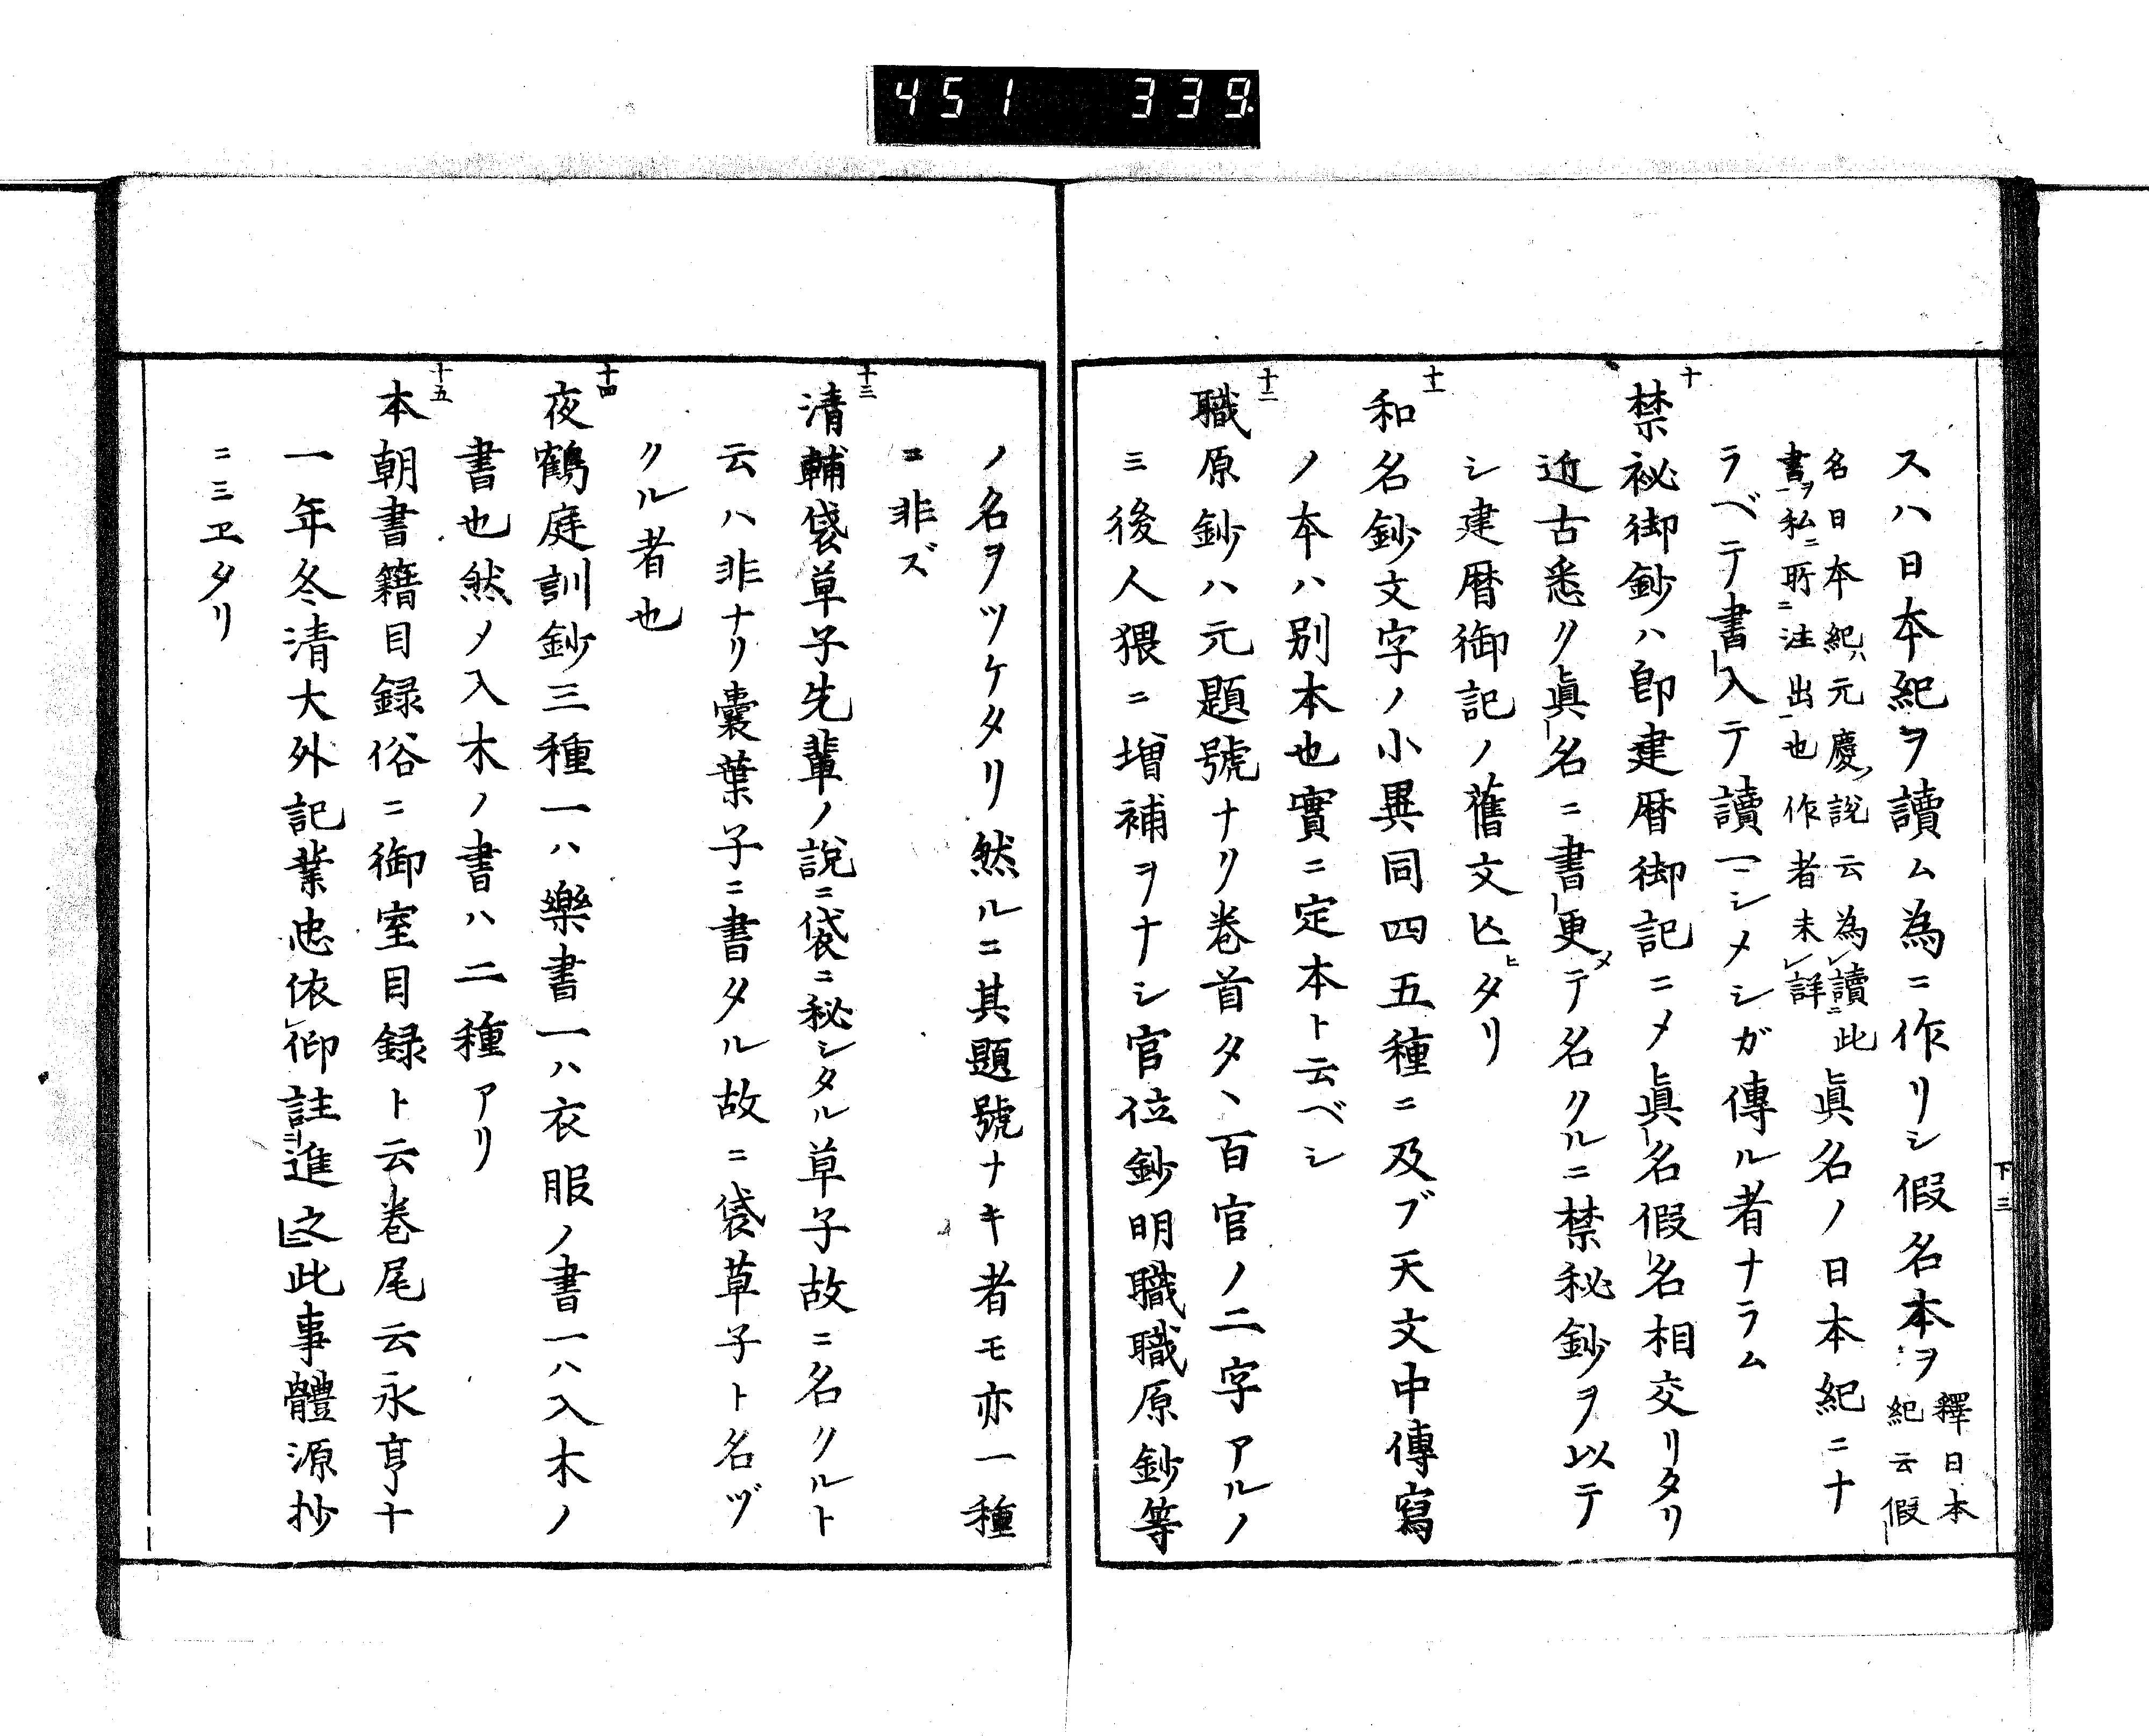 451 339
下三
スハ日本紀ヲ讀ム為ニ作リシ假名本ヲ釋日本紀云假
名日本紀ハ元慶ノ説云為レ讀ニ此書一ヲ私ニ所ニ注出一也作者未レ詳眞名ノ日本紀ニナ
ラベテ書入テ讀マシメシガ傳ル者ナラム
十
禁祕御鈔ハ即建暦御記ニメ眞名假名相交リタリ
近古悉ク眞名ニ書更メテ名クルニ禁秘鈔ヲ以テ
シ建暦御記ノ舊文亾ヒタリ
十一
和名鈔文字ノ小異同四五種ニ及ブ天文中傳寫
ノ本ハ別本也實ニ定本ト云ベシ
十二
職原鈔ハ元題號ナリ巻首タヽ百官ノ二字アルノ
ミ後人猥ニ増補ヲナシ官位鈔明職職原鈔等
ノ名ヲツケタリ然ルニ其題號ナキ者モ亦一種
ニ非ズ
十三
清輔袋草子先輩ノ説ニ袋ニ秘シタル草子故ニ名クルト
云ハ非ナリ嚢葉子ニ書タル故ニ袋草子ト名ヅ
クル者也
十四
夜鶴庭訓鈔三種一ハ樂書一ハ衣服ノ書一ハ入木ノ
書也然ノ入木ノ書ハ二種アリ
十五
本朝書籍目録俗ニ御室目録ト云巻尾云永亨十
一年冬清大外記業忠依レ仰註ニ進之一此事體源抄
ニミヱタリ